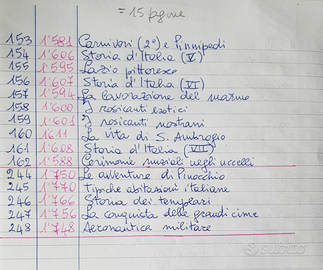 = 15 pagine
153 1'581 Carnivori (2°) e Pinnipedi
154 1'606 Storia d'Italia (V)
155 1'595 Lazio pittoresco
156 1'607 Storia d'Italia (VI)
157 1'594 La lavorazione del marmo
158 1'600 I rosicanti esotici
159 1'601 I rosicanti nostrani
160 1611 La vita di S. Ambrogio
161 1'608 Storia d'Italia (VII)
162 1'588 Cerimonie nuziali negli uccelli
244 1'750 Le avventure di Pinocchio
245 1'770 Tipiche abitazioni italiane
246 1'766 Storia dei templari
247 1'756 La conquista delle grandi cime
248 1'748 Aeronautica militare
subito